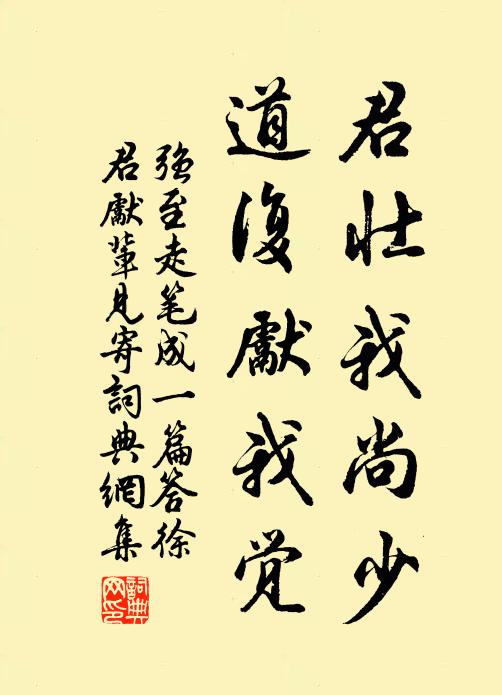 君壮我尚少
道復獻我覚
強至走笔成一篇答徐
君獻軰見寄詞典網集
詞典网印